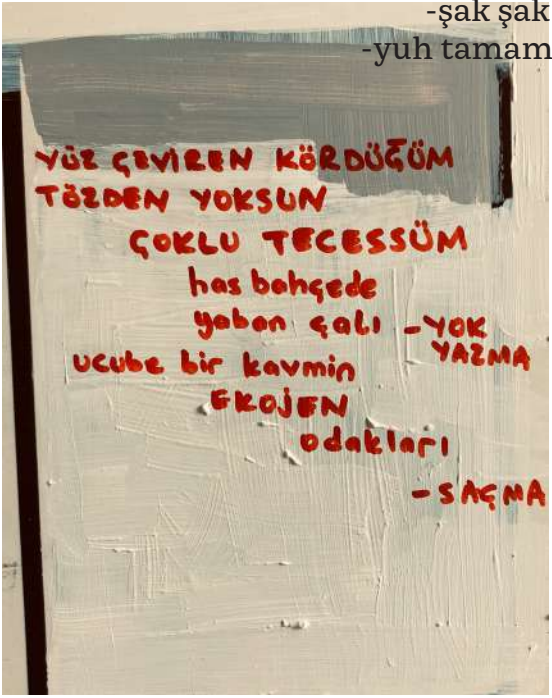 -şak şak
-yuh tamam
YÜZ ÇEVİREN KÖRDÜĞÜM
TÖZDEN YOKSUN
ÇOKLU TECESSÜM
has bahçede
yaban çalı -YOK
YAZMA
ucube bir kavmin
EKOJEN
odakları
-SAÇMA